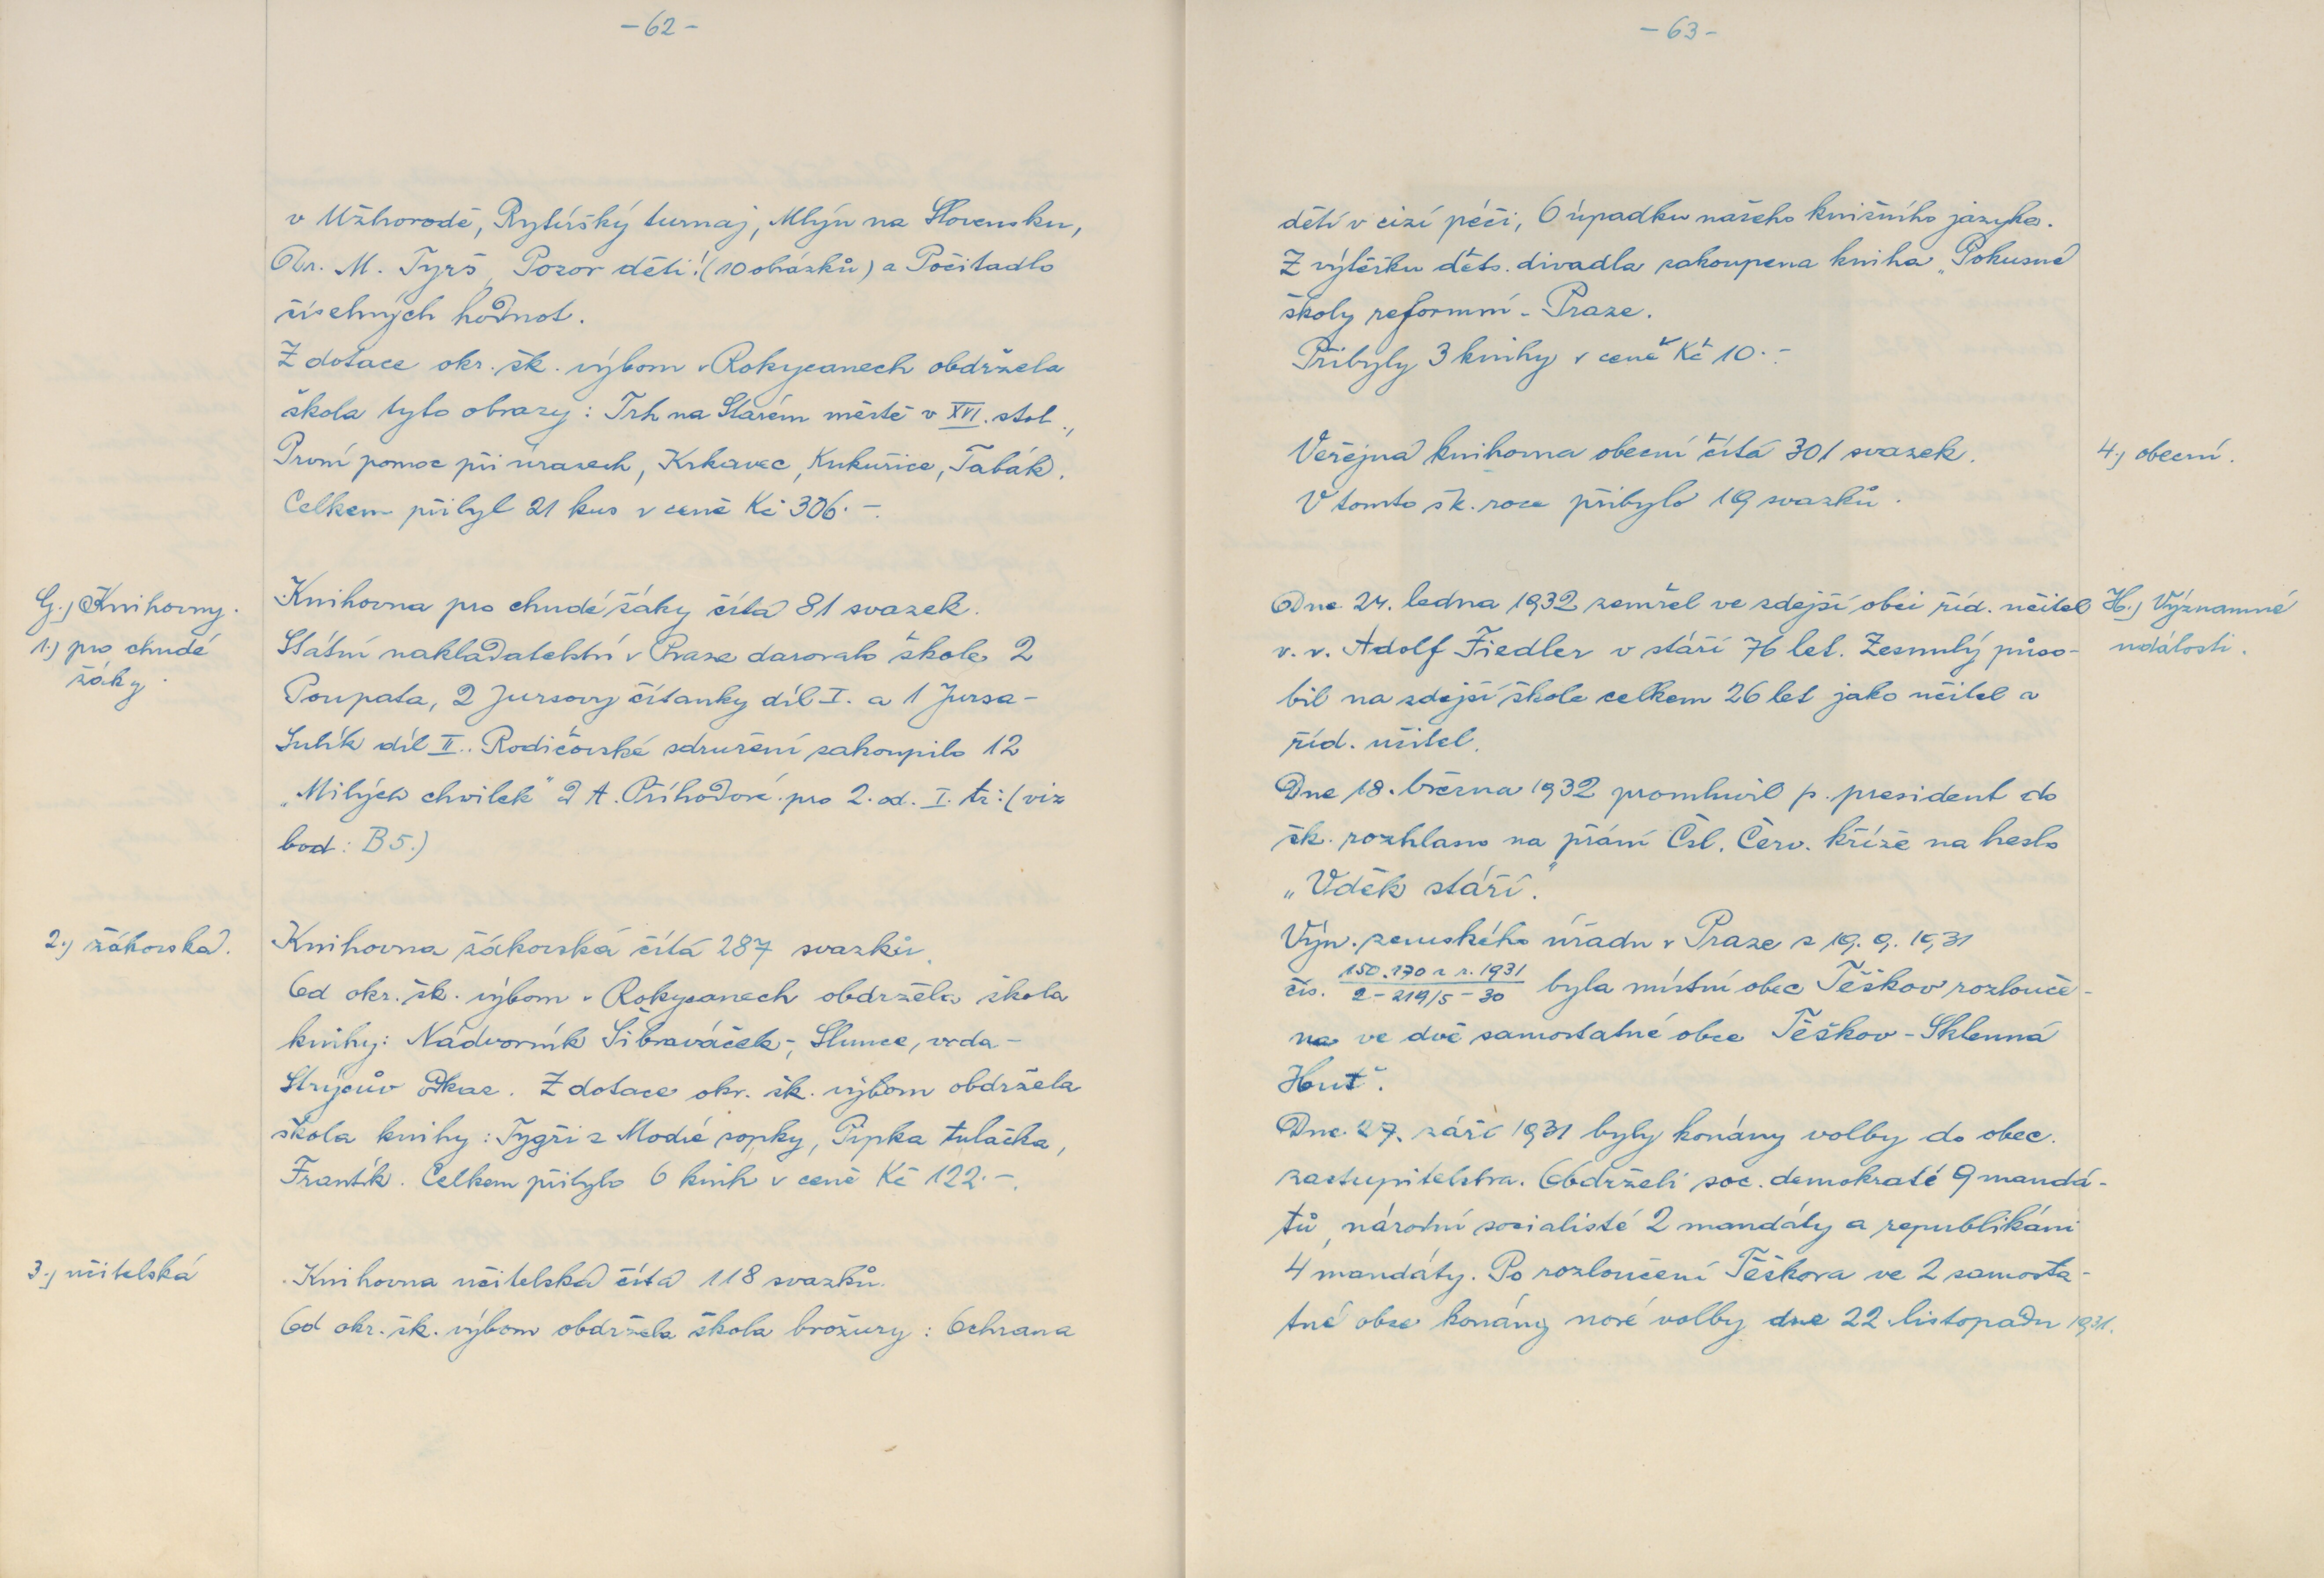 -62-
v Užhorodě, Rytířský turnaj, Mlýn na Slovensku,
Dr. M. Tyrš, Pozor děti! (10 obrázků) a Počitadlo
číselných hodnot.
Z dotace okr. šk. výboru v Rokycanech obdržela
škola tyto obrazy: Trh na Starém městě v XVI. stol.,
První pomoc při úrazech, Krkavec, Kukuřice, Tabák.
Celkem přibyl 21 kus v ceně Kč 306.-.
G.) Knihovny.
1.) pro chudé
žáky.
Knihovna pro chudé žáky čítá 81 svazek.
Státní nakladatelství v Praze darovalo škole 2
Poupata, 2 Jursovy čítanky díl I. a 1 Jursa-
Sulík díl II.. Rodičovské sdružení zakoupilo 12
"Milých chvilek" d A. Příhodové pro 2. od. I. tř: (viz
bod: B5.)
2.) žákovská.
Knihovna žákovská čítá 287 svazků.
Od okr. šk. výboru v Rokycanech obdržela škola
knihy: Nádvorník Šibraváček-, Slunce, vrda-
Strýcův. Z dotace okr. šk. výboru obdržela
škola knihy: Tygři z Modré sopky, Pipka tulačka,
Frantík. Celkem přibylo 6 knih v ceně Kč 122.-.
3.) učitelská
Knihovna učitelská čítá 118 svazků.
Od okr. šk. výboru obdržela škola brožury: Ochrana
-63-
dětí v cizí péči, O úpadku našeho knižního jazyka.
Z výtěžku děts. divadla zakoupena kniha "Pokusné
školy reformní - Praze.
Přibyly 3 knihy v ceně Kč 10.-
Veřejná knihovna obecní čítá 301 svazek.
V tomto šk. roce přibylo 19 svazků.
4.) obecní.
Dne 24. ledna 1932 zemřel ve zdejší obci říd. učitel
v. v. Adolf Fiedler v stáří 76 let. Zesnulý půso-
bil na zdejší škole celkem 26 let jako učitel a
říd. učitel.
H.) Významné
události.
Dne 18. března 1932 promluvil p. president do
šk. rozhlasu na přání Čsl. Červ. kříže na heslo
"Vděk stáří."
Výn. zemského úřadu v Praze z 19. 9. 1931
čís. 150.170 z r. 1931 / 2-219/5-30 byla místní obec Těškov rozlouče-
na ve dvě samostatné obce Těškov - Sklenná
Huť.
Dne 27. září 1931 byly konány volby do obec.
zastupitelstva. Obdrželi soc. demokraté 9 mandá-
tů, národní socialisté 2 mandáty a republikáni
4 mandáty. Po rozloučení Těškova ve 2 samosta-
tné obce konány nové volby dne 22. listopadu 1931.